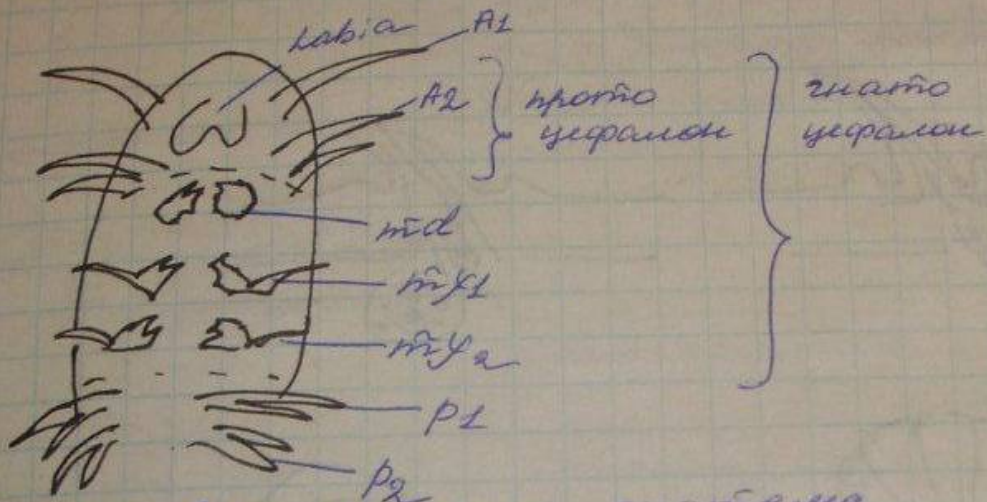 Labia
A1
A2
прото
цефалон
гнато
цефалон
md
mx1
mx2
p1
p2